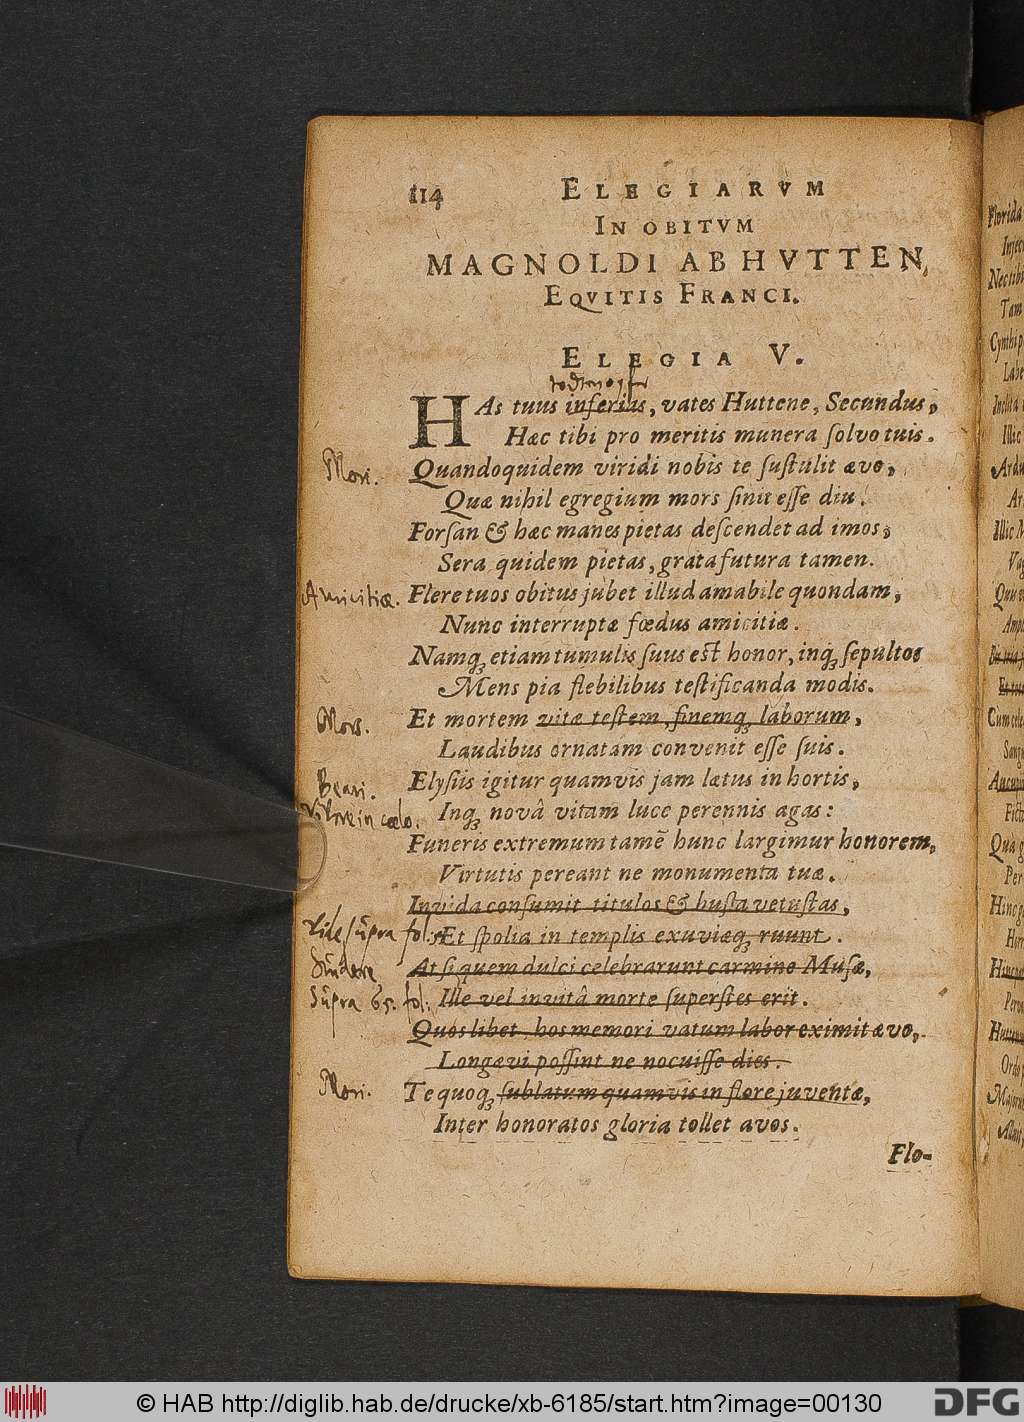 114 ELEGIARVM
IN OBITVM
MAGNOLDI AB HVTTEN,
EQVITIS FRANCI.
ELEGIA V.
HAs tuus inferias, vates Huttene, Secundus,
Hæc tibi pro meritis munera ſolvo tuis.
Mori. Quandoquidem viridi nobis te ſuſtulit ævo,
Quæ nihil egregium mors ſinit eſſe diu.
Forſan & hæc manes pietas deſcendet ad imos,
Sera quidem pietas, grata futura tamen.
Amicitiæ. Flere tuos obitus jubet illud amabile quondam,
Nunc interruptæ fœdus amicitiæ.
Namq; etiam tumulis ſuus eſt honor, inq; ſepultos
Mens pia flebilibus teſtificanda modis.
Mors. Et mortem vitæ teſtem, finemq; laborum,
Laudibus ornatam convenit eſſe ſuis.
Beari. Elyſiis igitur quamvis jam lætus in hortis,
Vivere in cœlo. Inq; novâ vitam luce perennis agas:
Funeris extremum tamē hunc largimur honorem,
Virtutis pereant ne monumenta tuæ.
Invida conſumit titulos & buſta vetuſtas,
Vide ſupra fol: Et ſpolia in templis exuviæq; ruunt.
Studere At ſi quem dulci celebrarunt carmine Muſæ,
ſupra 65. fol: Ille vel invitâ morte ſuperſtes erit.
Quos libet, hos memori vatum labor eximit ævo,
Longævi poſſint ne nocuiſſe dies.
Mori. Te quoq; ſublatum quamvis in flore juventæ,
Inter honoratos gloria tollet avos.
Flo-
© HAB http://diglib.hab.de/drucke/xb-6185/start.htm?image=00130
DFG